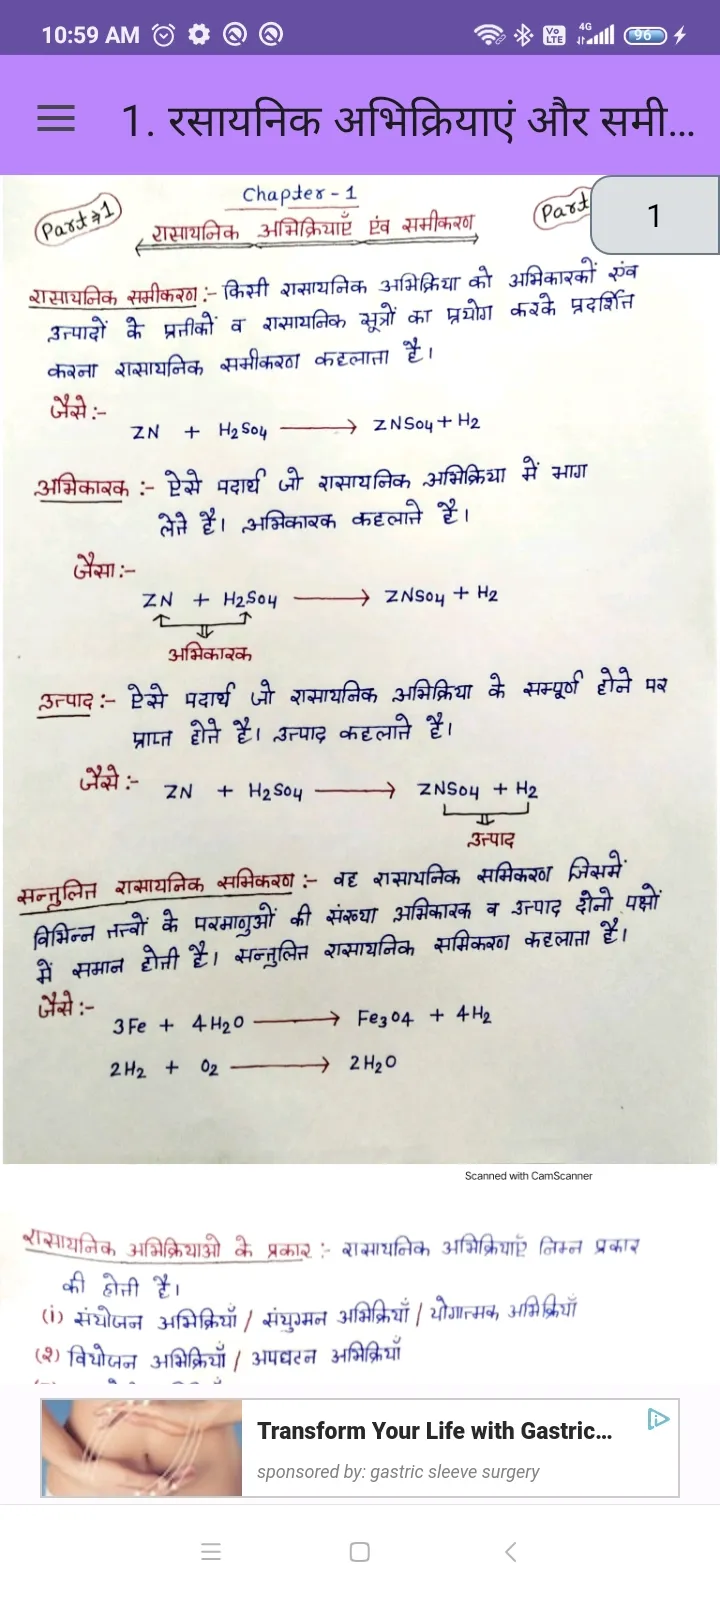 10:59 AM
Vo LTE 4G 96
1. रसायनिक अभिक्रियाएं और समी...
1
Part⇒1
Chapter-1
Part
रासायनिक अभिक्रियाएँ एंव समीकरण
रासायनिक समीकरण :- किसी रासायनिक अभिक्रिया को अभिकारकों एंव
उत्पादों के प्रतीकों व रासायनिक सूत्रों का प्रयोग करके प्रदर्शित
करना रासायनिक समीकरण कहलाता है।
जैसे :-
ZN + H2SO4 ⟶ ZNSO4 + H2
अभिकारक :- ऐसे पदार्थ जो रासायनिक अभिक्रिया में भाग
लेते है। अभिकारक कहलाते है।
जैसा :-
ZN + H2SO4 ⟶ ZNSO4 + H2
अभिकारक
उत्पाद :- ऐसे पदार्थ जो रासायनिक अभिक्रिया के सम्पूर्ण होने पर
प्राप्त होते है। उत्पाद कहलाते है।
जैसे :-
ZN + H2SO4 ⟶ ZNSO4 + H2
उत्पाद
सन्तुलित रासायनिक समिकरण :- वह रासायनिक समिकरण जिसमें
विभिन्न तत्वों के परमाणुओं की संख्या अभिकारक व उत्पाद दोनो पक्षों
में समान होती है। सन्तुलित रासायनिक समिकरण कहलाता है।
जैसे :-
3Fe + 4H2O ⟶ Fe3O4 + 4H2
2H2 + O2 ⟶ 2H2O
Scanned with CamScanner
रासायनिक अभिक्रियाओ के प्रकार :- रासायनिक अभिक्रियाएँ निम्न प्रकार
की होती है।
(i) संयोजन अभिक्रियाँ / संयुग्मन अभिक्रियाँ / योगात्मक अभिक्रियाँ
(२) वियोजन अभिक्रियाँ / अपघटन अभिक्रियाँ
Transform Your Life with Gastric...
sponsored by: gastric sleeve surgery